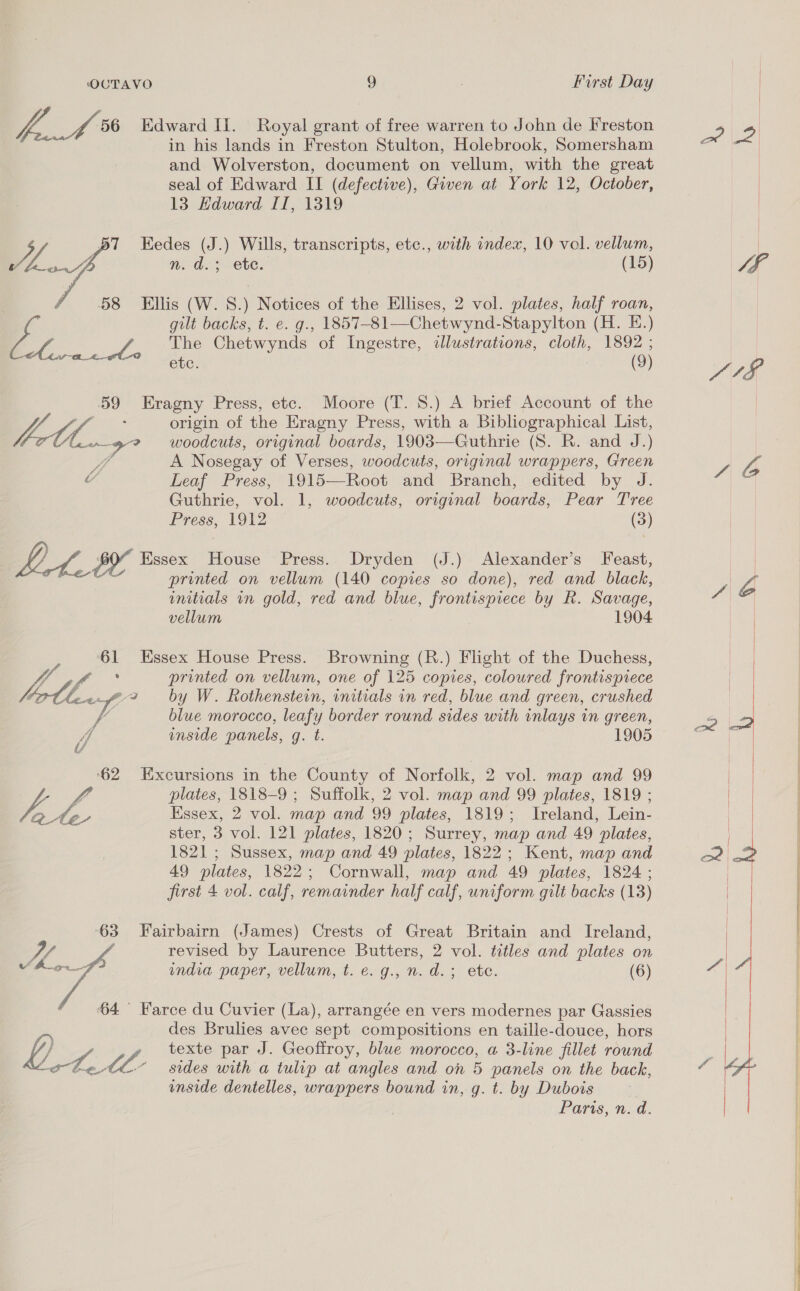 OCTAVO 9 First Day
56 Edward II. Royal grant of free warren to John de Freston
in his lands in Freston Stulton, Holebrook, Somersham
and Wolverston, document on vellum, with the great
seal of Edward II (defective), Given at York 12, October,
13 Edward II, 1319
2 2
57 Eedes (J.) Wills, transcripts, etc., with index, 10 vol. vellum,
n. d.; etc. (15)
58 Ellis (W. S.) Notices of the Ellises, 2 vol. plates, half roan,
gilt backs, t. e. g., 1857-81—Chetwynd-Stapylton (H. E.)
The Chetwynds of Ingestre, illustrations, cloth, 1892;
etc. (9)
59 Eragny Press, etc. Moore (T. S.) A brief Account of the
origin of the Eragny Press, with a Bibliographical List,
woodcuts, original boards, 1903—Guthrie (S. R. and J.)
A Nosegay of Verses, woodcuts, original wrappers, Green
Leaf Press, 1915—Root and Branch, edited by J.
Guthrie, vol. 1, woodcuts, original boards, Pear Tree
Press, 1912 (3)
1 6
60 Essex House Press. Dryden (J.) Alexander's Feast,
printed on vellum (140 copies so done), red and black,
initials in gold, red and blue, frontispiece by R. Savage,
vellum 1904
1 6
61 Essex House Press. Browning (R.) Flight of the Duchess,
printed on vellum, one of 125 copies, coloured frontispiece
by W. Rothenstein, initials in red, blue and green, crushed
blue morocco, leafy border round sides with inlays in green,
inside panels, g. t. 1905
2 2
62 Excursions in the County of Norfolk, 2 vol. map and 99
plates, 1818-9; Suffolk, 2 vol. map and 99 plates, 1819;
Essex, 2 vol. map and 99 plates, 1819; Ireland, Lein-
ster, 3 vol. 121 plates, 1820; Surrey, map and 49 plates,
1821; Sussex, map and 49 plates, 1822; Kent, map and
49 plates, 1822; Cornwall, map and 49 plates, 1824;
first 4 vol. calf, remainder half calf, uniform gilt backs (13)
2 2
63 Fairbairn (James) Crests of Great Britain and Ireland,
revised by Laurence Butters, 2 vol. titles and plates on
india paper, vellum, t. e. g., n. d.; etc. (6)
64 Farce du Cuvier (La), arrangée en vers modernes par Gassies
des Brulies avec sept compositions en taille-douce, hors
texte par J. Geoffroy, blue morocco, a 3-line fillet round
sides with a tulip at angles and on 5 panels on the back,
inside dentelles, wrappers bound in, g. t. by Dubois
Paris, n. d.